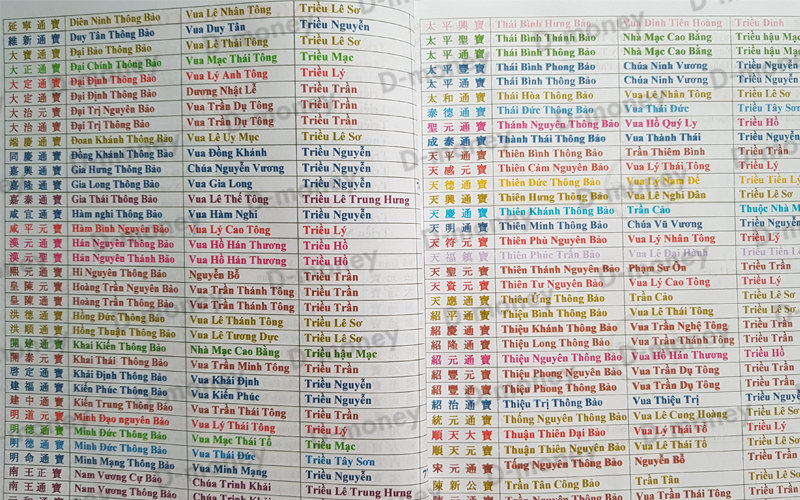 延寧通寶 Diên Ninh Thông Bảo Vua Lê Nhân Tông Triều Lê Sơ
維新通寶 Duy Tân Thông Bảo Vua Duy Tân Triều Nguyễn
大寶通寶 Đại Bảo Thông Bảo Vua Lê Thái Tông Triều Lê Sơ
大正通寶 Đại Chính Thông Bảo Vua Mạc Thái Tông Triều Mạc
大定通寶 Đại Định Thông Bảo Vua Lý Anh Tông Triều Lý
大定通寶 Đại Định Thông Bảo Dương Nhật Lễ Triều Trần
大治元寶 Đại Trị Nguyên Bảo Vua Trần Dụ Tông Triều Trần
大治通寶 Đại Trị Thông Bảo Vua Trần Dụ Tông Triều Trần
端慶通寶 Đoan Khánh Thông Bảo Vua Lê Uy Mục Triều Lê Sơ
同慶通寶 Đồng Khánh Thông Bảo Vua Đồng Khánh Triều Nguyễn
嘉興通寶 Gia Hưng Thông Bảo Chúa Nguyễn Vương Triều Nguyễn
嘉隆通寶 Gia Long Thông Bảo Vua Gia Long Triều Nguyễn
嘉泰通寶 Gia Thái Thông Bảo Vua Lê Thế Tông Triều Lê Trung Hưng
咸宜通寶 Hàm nghi Thông Bảo Vua Hàm Nghi Triều Nguyễn
咸平元寶 Hàm Bình Nguyên Bảo Vua Lý Cao Tông Triều Lý
漢元通寶 Hán Nguyên Thông Bảo Vua Hồ Hán Thương Triều Hồ
漢元聖寶 Hán Nguyên Thánh Bảo Vua Hồ Hán Thương Triều Hồ
熙元通寶 Hi Nguyên Thông Bảo Nguyễn Bổ Triều Trần
皇陳元寶 Hoàng Trần Nguyên Bảo Vua Trần Thánh Tông Triều Trần
皇陳通寶 Hoàng Trần Thông Bảo Vua Trần Thánh Tông Triều Trần
洪德通寶 Hồng Đức Thông Bảo Vua Lê Thánh Tông Triều Lê Sơ
洪順通寶 Hồng Thuận Thông Bảo Vua Lê Tương Dực Triều Lê Sơ
開建通寶 Khai Kiến Thông Bảo Nhà Mạc Cao Bằng Triều hậu Mạc
開泰元寶 Khai Thái Thông Bảo Vua Trần Minh Tông Triều Trần
啓定通寶 Khải Định Thông Bảo Vua Khải Định Triều Nguyễn
建福通寶 Kiến Phúc Thông Bảo Vua Kiến Phúc Triều Nguyễn
建中通寶 Kiến Trung Thông Bảo Vua Trần Thái Tông Triều Trần
明道元寶 Minh Đạo nguyên Bảo Vua Lý Thái Tông Triều Lý
明德通寶 Minh Đức Thông Bảo Vua Mạc Thái Tổ Triều Mạc
明德通寶 Minh Đức Thông Bảo Vua Thái Đức Triều Tây Sơn
明命通寶 Minh Mạng Thông Bảo Vua Minh Mạng Triều Nguyễn
南王正寶 Nam Vương Cự Bảo Chúa Trịnh Khải
南王通寶 Nam Vương Thông Bảo Chúa Trịnh Khải Triều Lê Trung Hưng
太平興寶 Thái Bình Hưng Bảo Vua Đinh Tiên Hoàng Triều Đinh
太平聖寶 Thái Bình Thánh Bảo Nhà Mạc Cao Bằng Triều hậu Mạc
太平豐寶 Thái Bình Phong Bảo Chúa Ninh Vương Triều Nguyễn
太平通寶 Thái Bình Thông Bảo Chúa Ninh Vương Triều Nguyễn
太和通寶 Thái Hòa Thông Bảo Vua Lê Nhân Tông Triều Lê Sơ
泰德通寶 Thái Đức Thông Bảo Vua Thái Đức Triều Tây Sơn
聖元通寶 Thánh Nguyên Thông Bảo Vua Hồ Quý Ly Triều Hồ
成泰通寶 Thành Thái Thông Bảo Vua Thành Thái Triều Nguyễn
天平通寶 Thiên Bình Thông Bảo Trần Thiêm Bình Triều Trần
天感元寶 Thiên Cảm Nguyên Bảo Vua Lý Thái Tông Triều Lý
天德通寶 Thiên Đức Thông Bảo Vua Lý Nam Đế Triều Tiền Lý
天興通寶 Thiên Hưng Thông Bảo Vua Lê Nghi Dân Triều Lê Sơ
天慶通寶 Thiên Khánh Thông Bảo Trần Cảo Thuộc Nhà M
天明通寶 Thiên Minh Thông Bảo Chúa Vũ Vương Triều Nguyễn
天符元寶 Thiên Phù Nguyên Bảo Vua Lý Nhân Tông Triều Lý
天福鎮寶 Thiên Phúc Trấn Bảo Vua Lê Đại Hành Triều Tiền L
天聖元寶 Thiên Thánh Nguyên Bảo Phạm Sư Ôn Triều Trần
天資元寶 Thiên Tư Nguyên Bảo Vua Lý Cao Tông Triều Lý
天應通寶 Thiên Ứng Thông Bảo Trần Cảo Triều Lê Sơ
紹平通寶 Thiệu Bình Thông Bảo Vua Lê Thái Tông Triều Lê Sơ
紹慶通寶 Thiệu Khánh Thông Bảo Vua Trần Nghệ Tông Triều Trần
紹隆通寶 Thiệu Long Thông Bảo Vua Trần Thánh Tông Triều Trần
紹元通寶 Thiệu Nguyên Thông Bảo Vua Hồ Hán Thương Triều Hồ
紹豐元寶 Thiệu Phong Nguyên Bảo Vua Trần Dụ Tông Triều Trần
紹豐通寶 Thiệu Phong Thông Bảo Vua Trần Dụ Tông Triều Trần
紹治通寶 Thiệu Trị Thông Bảo Vua Thiệu Trị Triều Nguyễn
統元通寶 Thống Nguyên Thông Bảo Vua Lê Cung Hoàng Triều Lê Sơ
順天大寶 Thuận Thiên Đại Bảo Vua Lý Thái Tổ Triều Lý
順天元寶 Thuận Thiên Nguyên Bảo Vua Lê Thái Tổ Triều Lê Sơ
宋元通寶 Tống Nguyên Thông Bảo Nguyễn Bổ Triều Trần
陳新公寶 Trần Tân Công Bảo Trần Tân Triều Trần
D-money